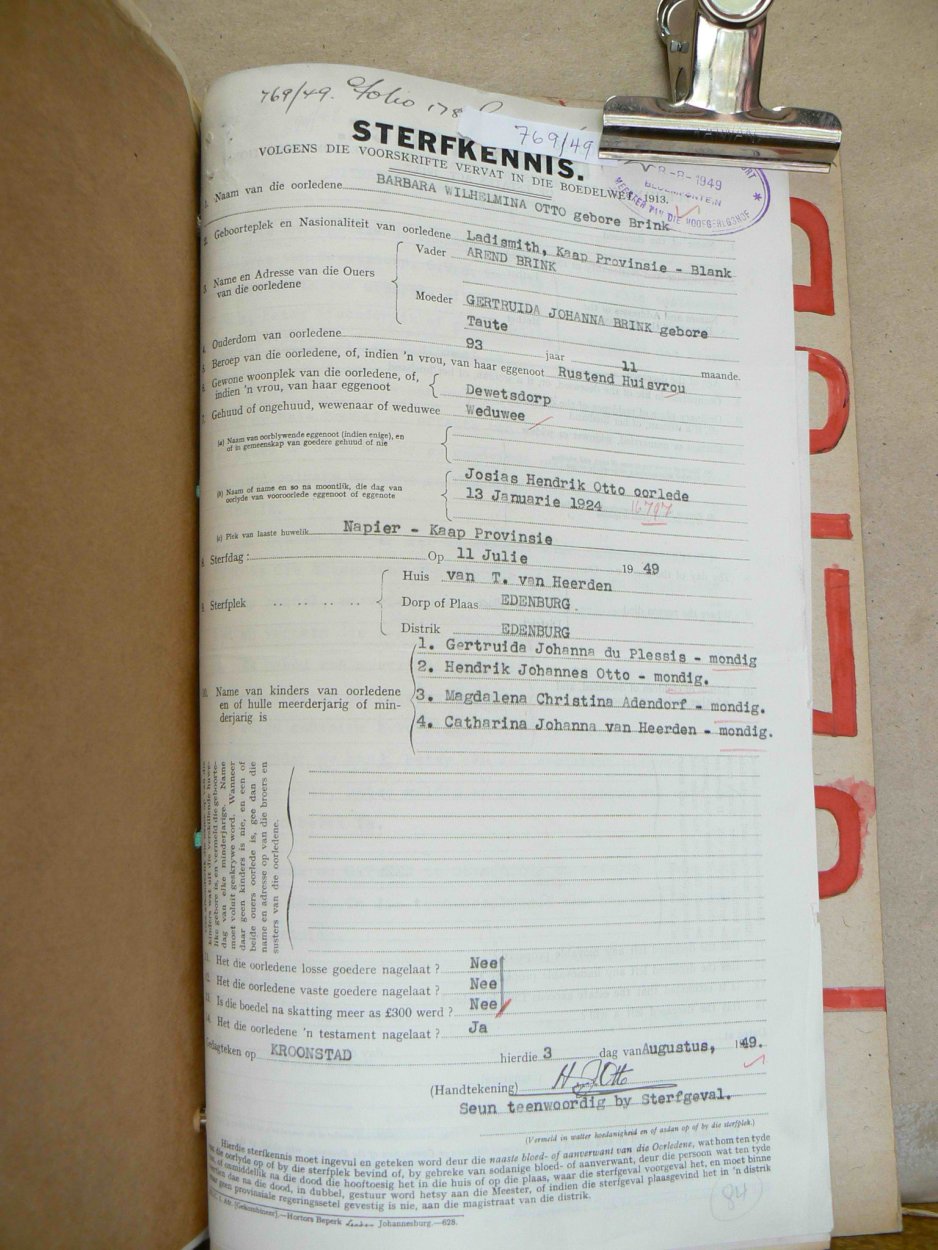 769/49. Folio 178
769/49
STERFKENNIS.
VOLGENS DIE VOORSKRIFTE VERVAT IN DIE BOEDELWET, 1913.
8-1949
MEESTER VAN DIE HOOGGEREGSHOF
1. Naam van die oorledene BARBARA WILHELMINA OTTO gebore Brink
2. Geboorteplek en Nasionaliteit van oorledene Ladismith, Kaap Provinsie - Blank
3. Name en Adresse van die Ouers van die oorledene
Vader AREND BRINK
Moeder GERTRUIDA JOHANNA BRINK gebore
Taute
4. Ouderdom van oorledene 93 jaar 11 maande.
5. Beroep van die oorledene, of, indien 'n vrou, van haar eggenoot Rustend Huisvrou
6. Gewone woonplek van die oorledene, of, indien 'n vrou, van haar eggenoot Dewetsdorp
7. Gehuud of ongehuud, wewenaar of weduwee Weduwee
(a) Naam van oorblywende eggenoot (indien enige), en
of in gemeenskap van goedere gehuud of nie
(b) Naam of name en so na moontlik, die dag van
oorlyde van vooroorlede eggenoot of eggenote
Josias Hendrik Otto oorlede
13 Januarie 1924
(c) Plek van laaste huwelik Napier - Kaap Provinsie
8. Sterfdag: Op 11 Julie 1949
9. Sterfplek
Huis van T. van Heerden
Dorp of Plaas EDENBURG.
Distrik EDENBURG
10. Name van kinders van oorledene
en of hulle meerderjarig of min-
derjarig is
1. Gertruida Johanna du Plessis - mondig
2. Hendrik Johannes Otto - mondig.
3. Magdalena Christina Adendorf - mondig.
4. Catharina Johanna van Heerden - mondig.
like gebore is, en vermeld die geboorte-
dag van elke minderjarige. Name
moet voluit geskrywe word. Wanneer
daar geen kinders is nie, en een of
beide ouers oorlede is, gee dan die
name en adresse op van die broers en
susters van die oorledene.
11. Het die oorledene losse goedere nagelaat ? Nee
12. Het die oorledene vaste goedere nagelaat ? Nee
13. Is die boedel na skatting meer as £300 werd ? Nee
14. Het die oorledene 'n testament nagelaat ? Ja
Gedagteken op KROONSTAD hierdie 3 dag van Augustus, 1949.
(Handtekening) H J Otto
Seun teenwoordig by Sterfgeval.
(Vermeld in watter hoedanigheid en of asdan op of by die sterfplek.)
Hierdie sterfkennis moet ingevul en geteken word deur die naaste bloed- of aanverwant van die Oorledene, wat hom ten tyde
van die oorlyde op of by die sterfplek bevind of, by gebreke van sodanige bloed- of aanverwant, deur die persoon wat ten tyde
van of onmiddellik na die dood die hooftoesig het in die huis of op die plaas, waar die sterfgeval voorgeval het, en moet binne
dae na die dood, in dubbel, gestuur word hetsy aan die Meester, of indien die sterfgeval plaasgevind het in 'n distrik
waar geen provinsiale regeringssetel gevestig is nie, aan die magistraat van die distrik.
[Gekombineer].—Hortors Beperk Johannesburg.—628.
(84)